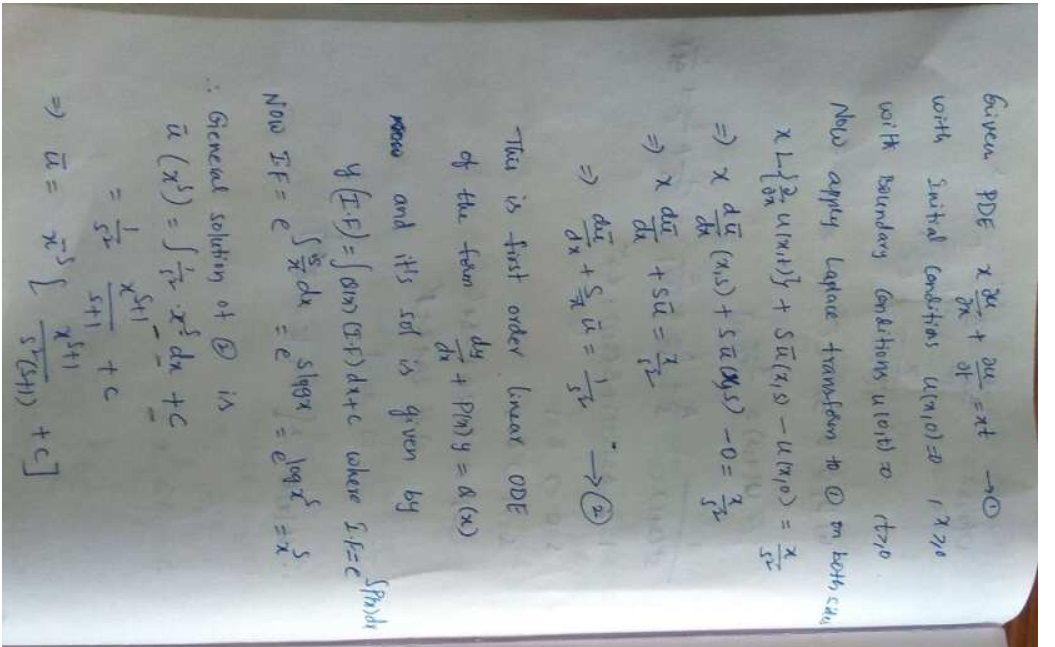 Given PDE x ∂u/∂x + ∂u/∂t = xt → ①
with Initial Conditions u(x,0)=0 , x≥0
with Boundary Conditions u(0,t)=0 , t≥0
Now apply Laplace transform to ① on both sides
x L{∂/∂x u(x,t)} + S ū(x,s) − u(x,0) = x/s²
⇒ x dū/dx (x,s) + S ū(x,s) − 0 = x/s²
⇒ x dū/dx + Sū = x/s²
⇒ dū/dx + s/x ū = 1/s² → ②
This is first order linear ODE
of the form dy/dx + P(x) y = Q(x)
and it's sol is given by
y(I.F) = ∫Q(x) (I.F) dx + c where I.F = e^∫P(x)dx
Now I.F = e^∫s/x dx = e^s log x = e^log x^s = x^s
∴ General solution of ② is
ū (x^s) = ∫ 1/s² · x^s dx + c
= 1/s² x^s+1/s+1 + c
⇒ ū = x^-s [ x^s+1/s²(s+1) + c ]